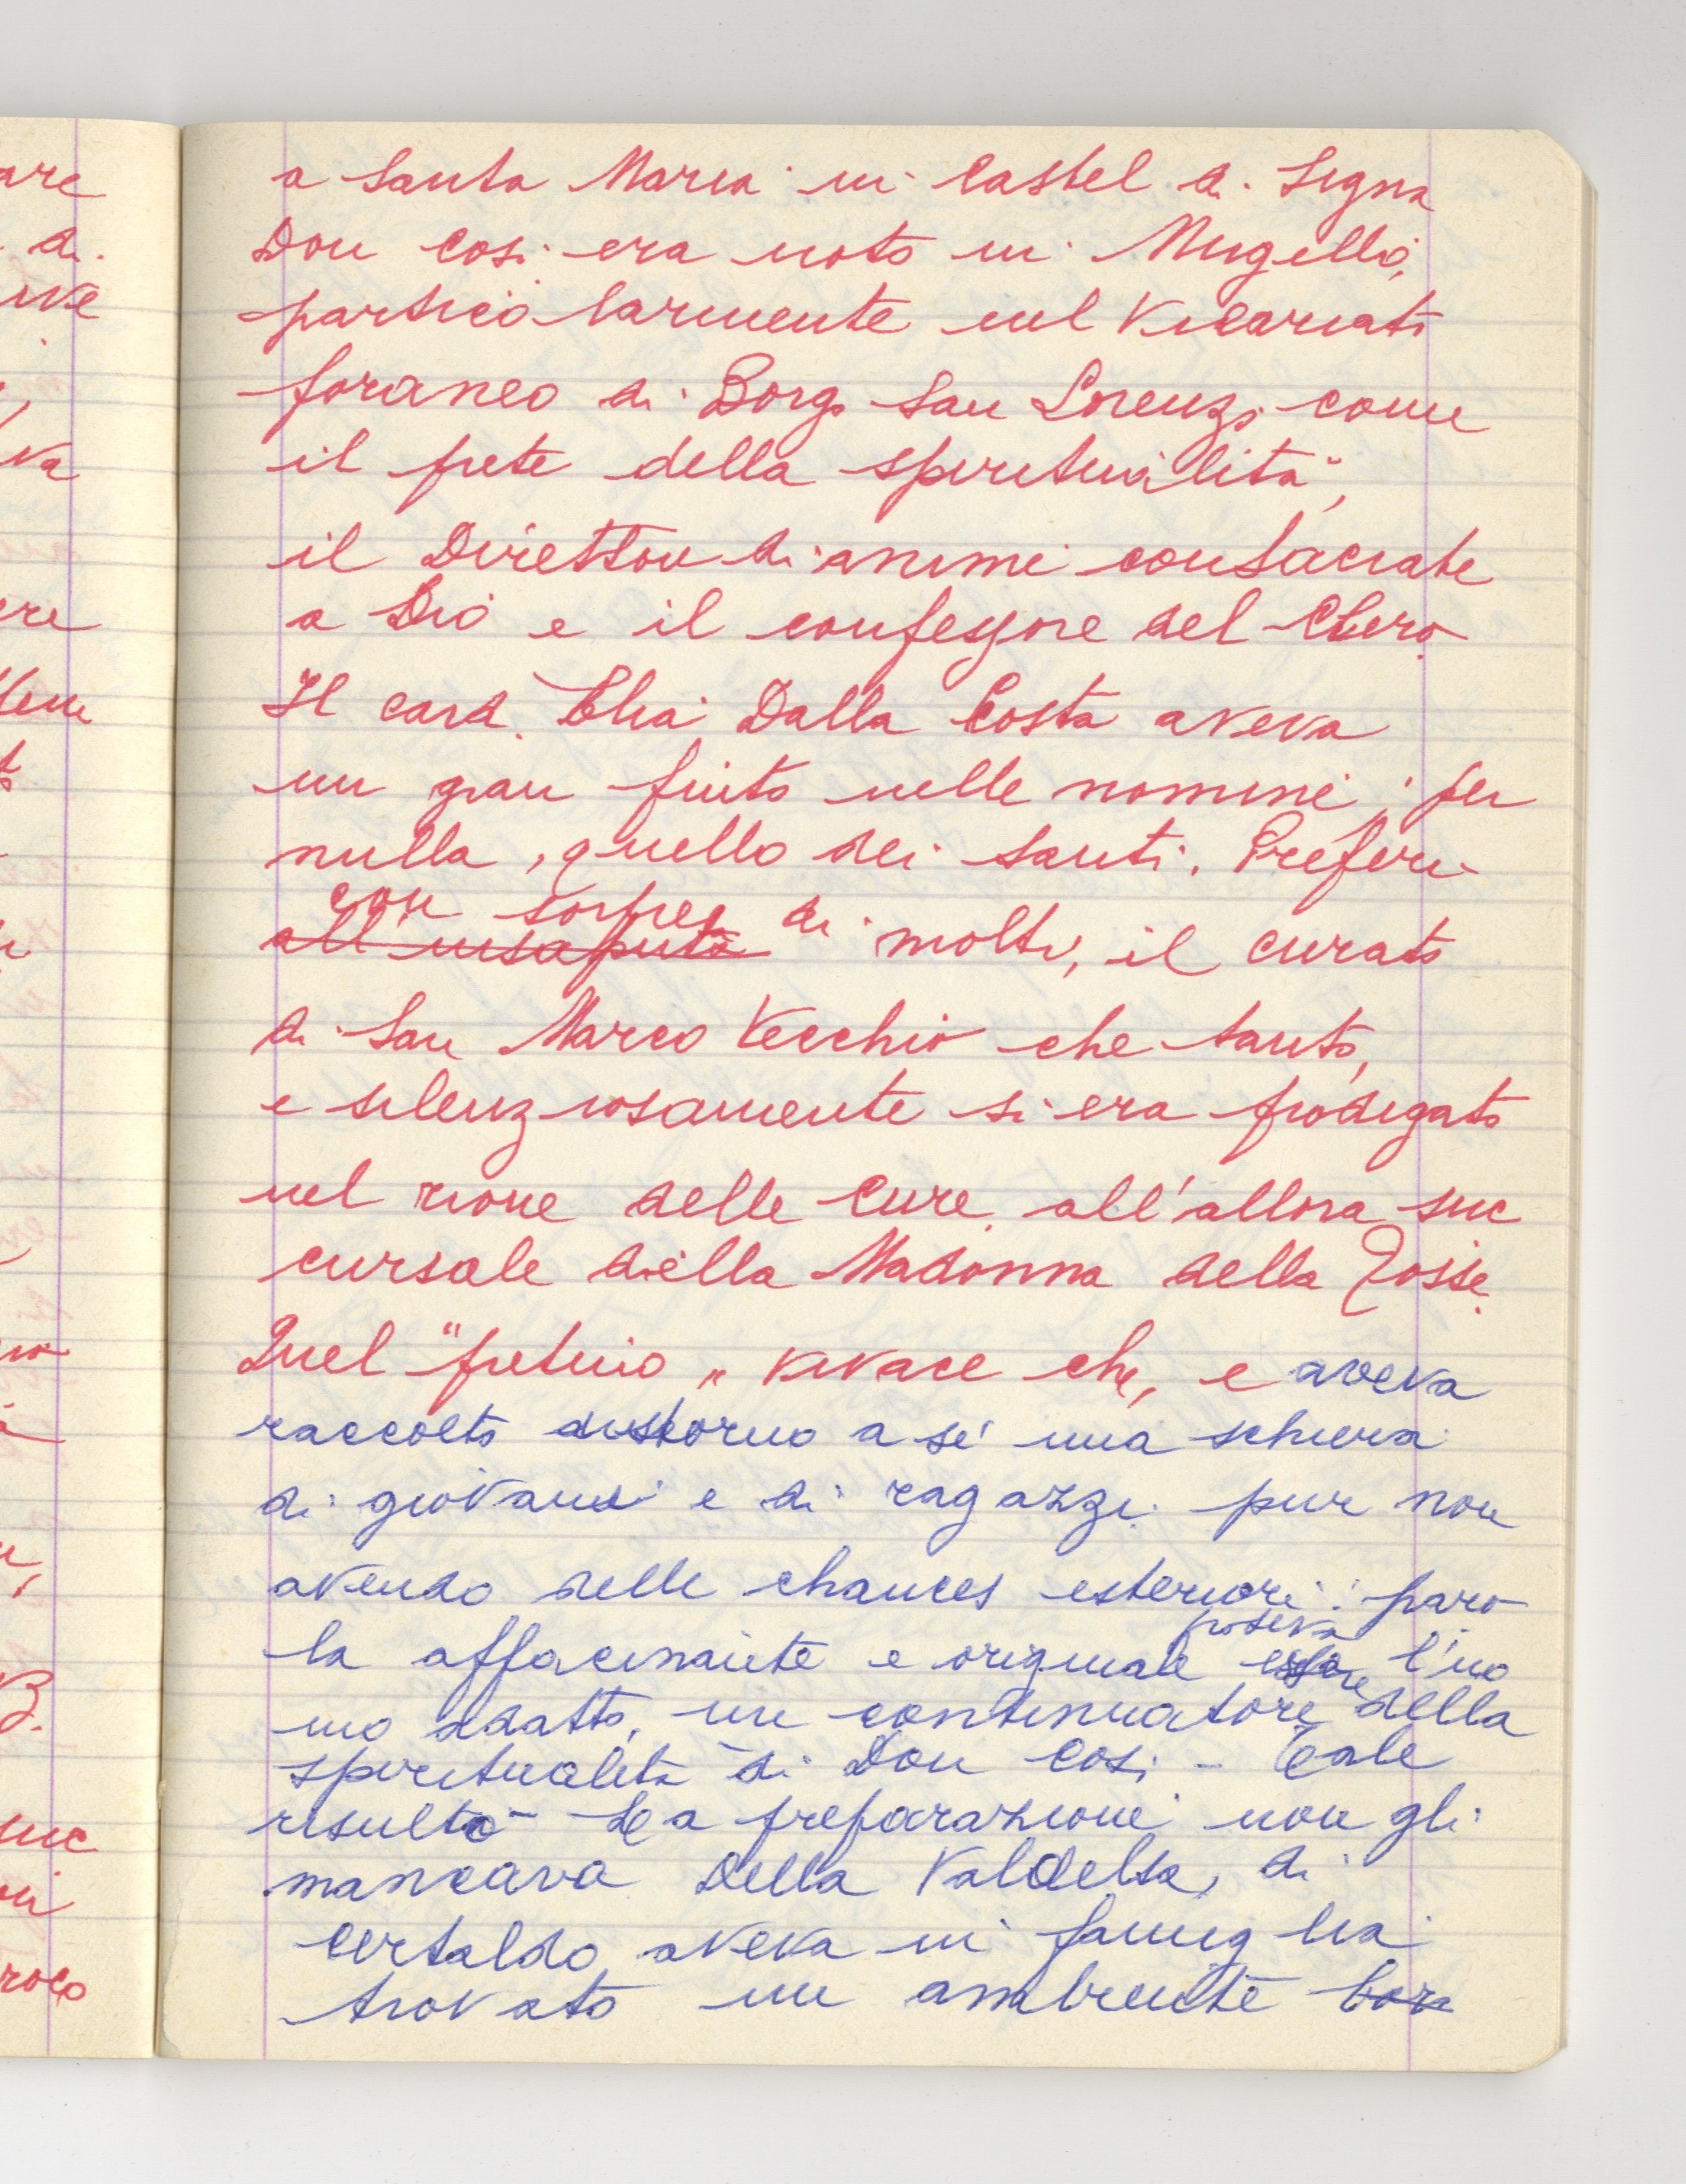 a Santa Maria in Castel di Signa
Don Cosi era noto in Mugello,
particolarmente nel Vicariato
foraneo di Borgo San Lorenzo come
il prete della spiritualità",
il Direttore di anime consacrate
a Dio e il confessore del Clero.
Il card. Elia Dalla Costa aveva
un gran fiuto nelle nomine: per
nulla, quello dei santi. Preferi
con sorpresa di
all'insaputa molti, il curato
di San Marco Vecchio che tanto,
e silenziosamente si era prodigato
nel rione delle Cure, all'allora suc
cursale della Madonna della Tosse.
Quel "pretino" vivace che, e aveva
raccolto dintorno a sé una schiera
di giovani e di ragazzi pur non
avendo delle chances esteriori: paro
la affascinante e originale
poteva
essere l'uo
mo adatto, un continuatore della
spiritualità di Don Cosi - Tale
risultò - La preparazione non gli
mancava Della Valdelsa, di
Certaldo, aveva in famiglia
trovato un ambiente bon
are
di
ive
va
ere
B.
roco